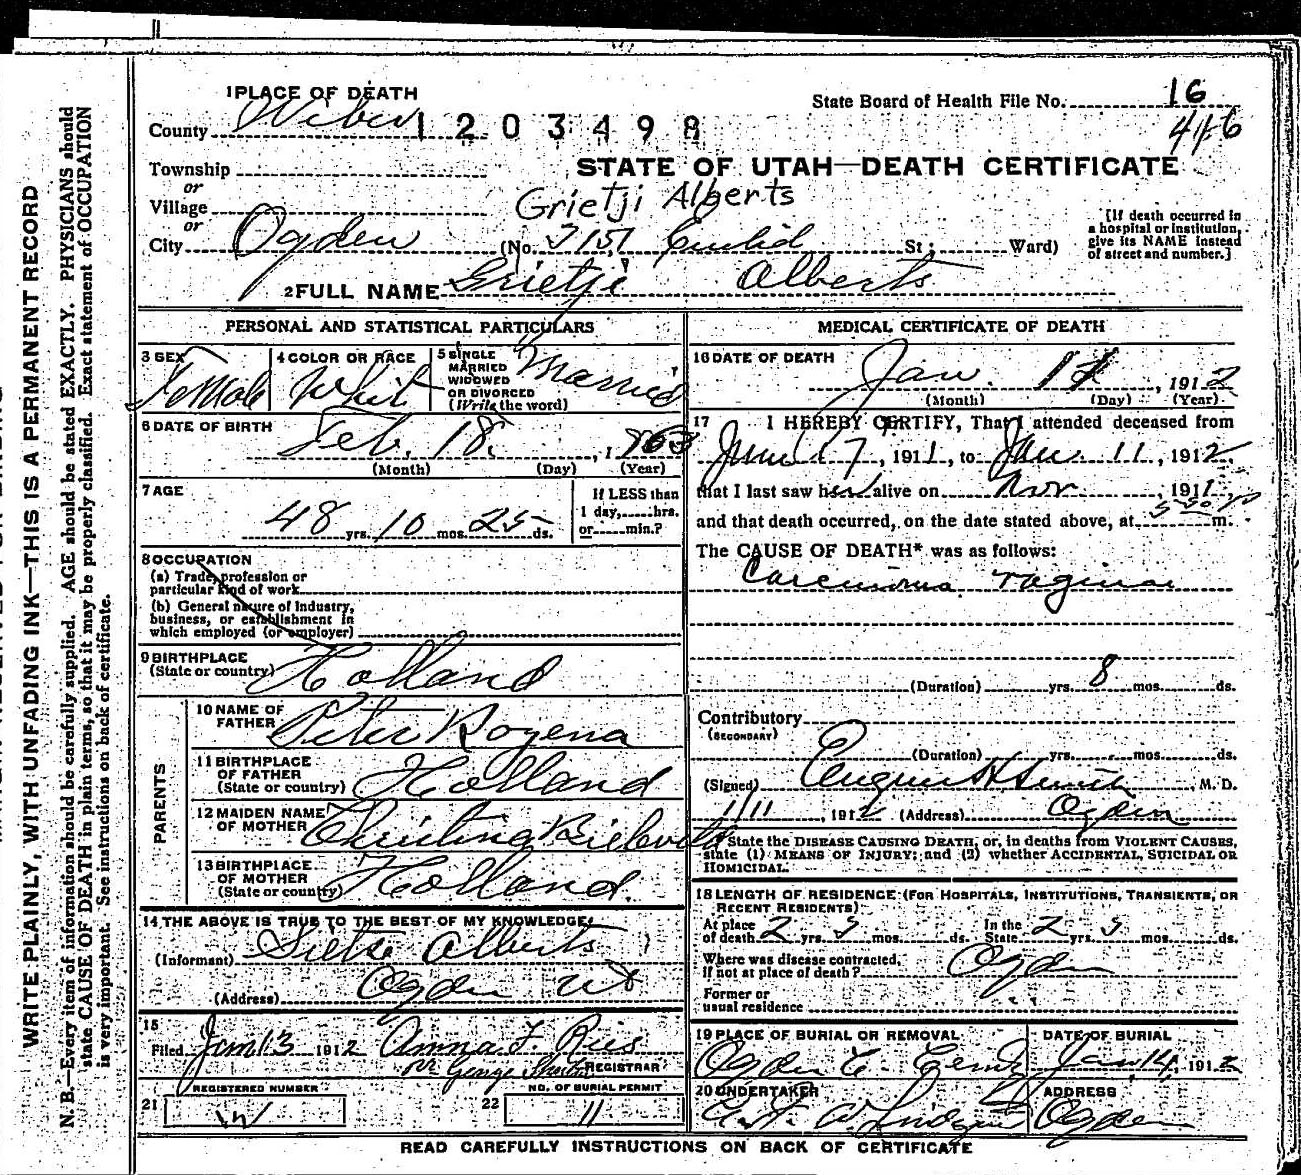 1 PLACE OF DEATH
State Board of Health File No. 16
County Weber 1203498
446
Township
STATE OF UTAH—DEATH CERTIFICATE
or
Village
Grietji Alberts
or
City Ogden (No. 3151 Euclid St; Ward)
[If death occurred in
a hospital or institution,
give its NAME instead
of street and number.]
2 FULL NAME Grietje Alberts
PERSONAL AND STATISTICAL PARTICULARS
3 SEX Female
4 COLOR OR RACE White
5 SINGLE
MARRIED
WIDOWED
OR DIVORCED
(Write the word)
Married
6 DATE OF BIRTH
Feb. 18, 1863
(Month) (Day) (Year)
7 AGE
48 yrs. 10 mos. 25 ds.
If LESS than
1 day, hrs.
or min.?
8 OCCUPATION
(a) Trade, profession or
particular kind of work
(b) General nature of industry,
business, or establishment in
which employed (or employer)
9 BIRTHPLACE
(State or country) Holland
PARENTS
10 NAME OF
FATHER Peter
11 BIRTHPLACE
OF FATHER
(State or country) Holland
12 MAIDEN NAME
OF MOTHER Christina
13 BIRTHPLACE
OF MOTHER
(State or country) Holland.
14 THE ABOVE IS TRUE TO THE BEST OF MY KNOWLEDGE.
(Informant) Sietse Alberts
(Address) Ogden Ut
15
Filed Jan 13 1912 Anna F. Ries
REGISTRAR
REGISTERED NUMBER
21
NO. OF BURIAL PERMIT
22 11
MEDICAL CERTIFICATE OF DEATH
16 DATE OF DEATH
Jan. , 1912
(Month) (Day) (Year)
17 I HEREBY CERTIFY, That I attended deceased from
June 17, 1911, to Jan. 11, 1912
that I last saw her alive on Nov , 1911
and that death occurred, on the date stated above, at m.
The CAUSE OF DEATH* was as follows:
Carcinoma Vagina
(Duration) yrs. 8 mos. ds.
Contributory
(SECONDARY)
(Duration) yrs. mos. ds.
(Signed) Eugene H Smith, M. D.
1/11, 1912 (Address) Ogden
* State the DISEASE CAUSING DEATH, or, in deaths from VIOLENT CAUSES,
state (1) MEANS OF INJURY; and (2) whether ACCIDENTAL, SUICIDAL OR
HOMICIDAL.
18 LENGTH OF RESIDENCE (FOR HOSPITALS, INSTITUTIONS, TRANSIENTS, OR
RECENT RESIDENTS)
At place
of death 2 yrs. 5 mos. ds.
In the
State 2 yrs. 5 mos. ds.
Where was disease contracted,
if not at place of death? Ogden
Former or
usual residence
19 PLACE OF BURIAL OR REMOVAL
Ogden C. Cemty
DATE OF BURIAL
Jan. 14, 1912
20 UNDERTAKER
ADDRESS
Ogden
READ CAREFULLY INSTRUCTIONS ON BACK OF CERTIFICATE
WRITE PLAINLY, WITH UNFADING INK—THIS IS A PERMANENT RECORD
N. B.—Every item of information should be carefully supplied. AGE should be stated EXACTLY. PHYSICIANS should
state CAUSE OF DEATH in plain terms, so that it may be properly classified. Exact statement of OCCUPATION
is very important. See instructions on back of certificate.